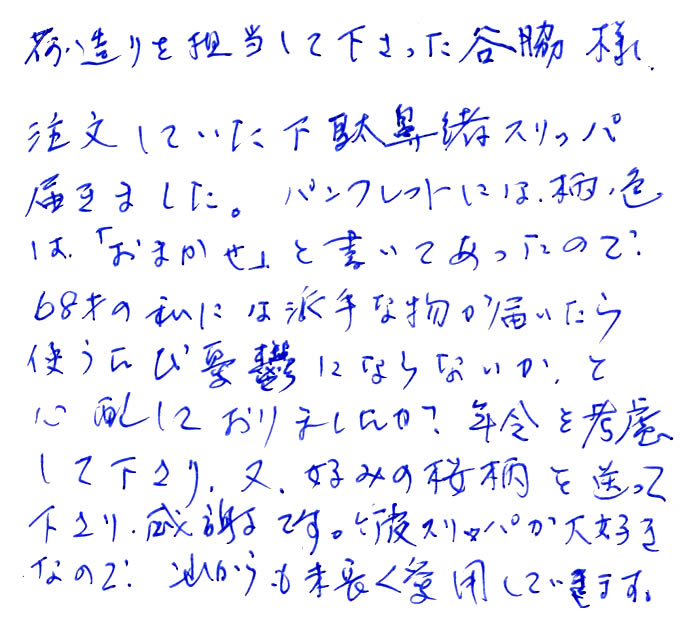 荷造りを担当して下さった谷脇 様
注文していた下駄鼻緒スリッパ
届きました。パンフレットには、柄、色
は、「おまかせ」と書いてあったので、
68才の私には派手な物が届いたら
使うたび憂鬱にならないか、と
心配しておりましたが、年令を考慮
して下さり、又、好みの桜柄を送って
下さり、感謝です。スリッパが大好き
なので、これからも末長く愛用していきます。